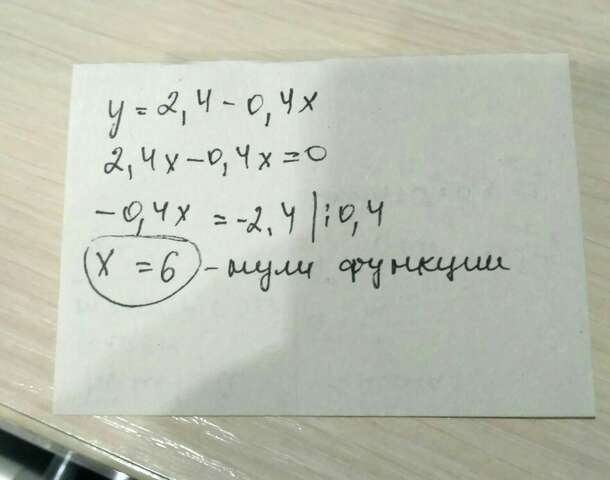 y = 2,4 - 0,4x
2,4x - 0,4x = 0
-0,4x = -2,4 | : 0,4
x = 6 - нули функции